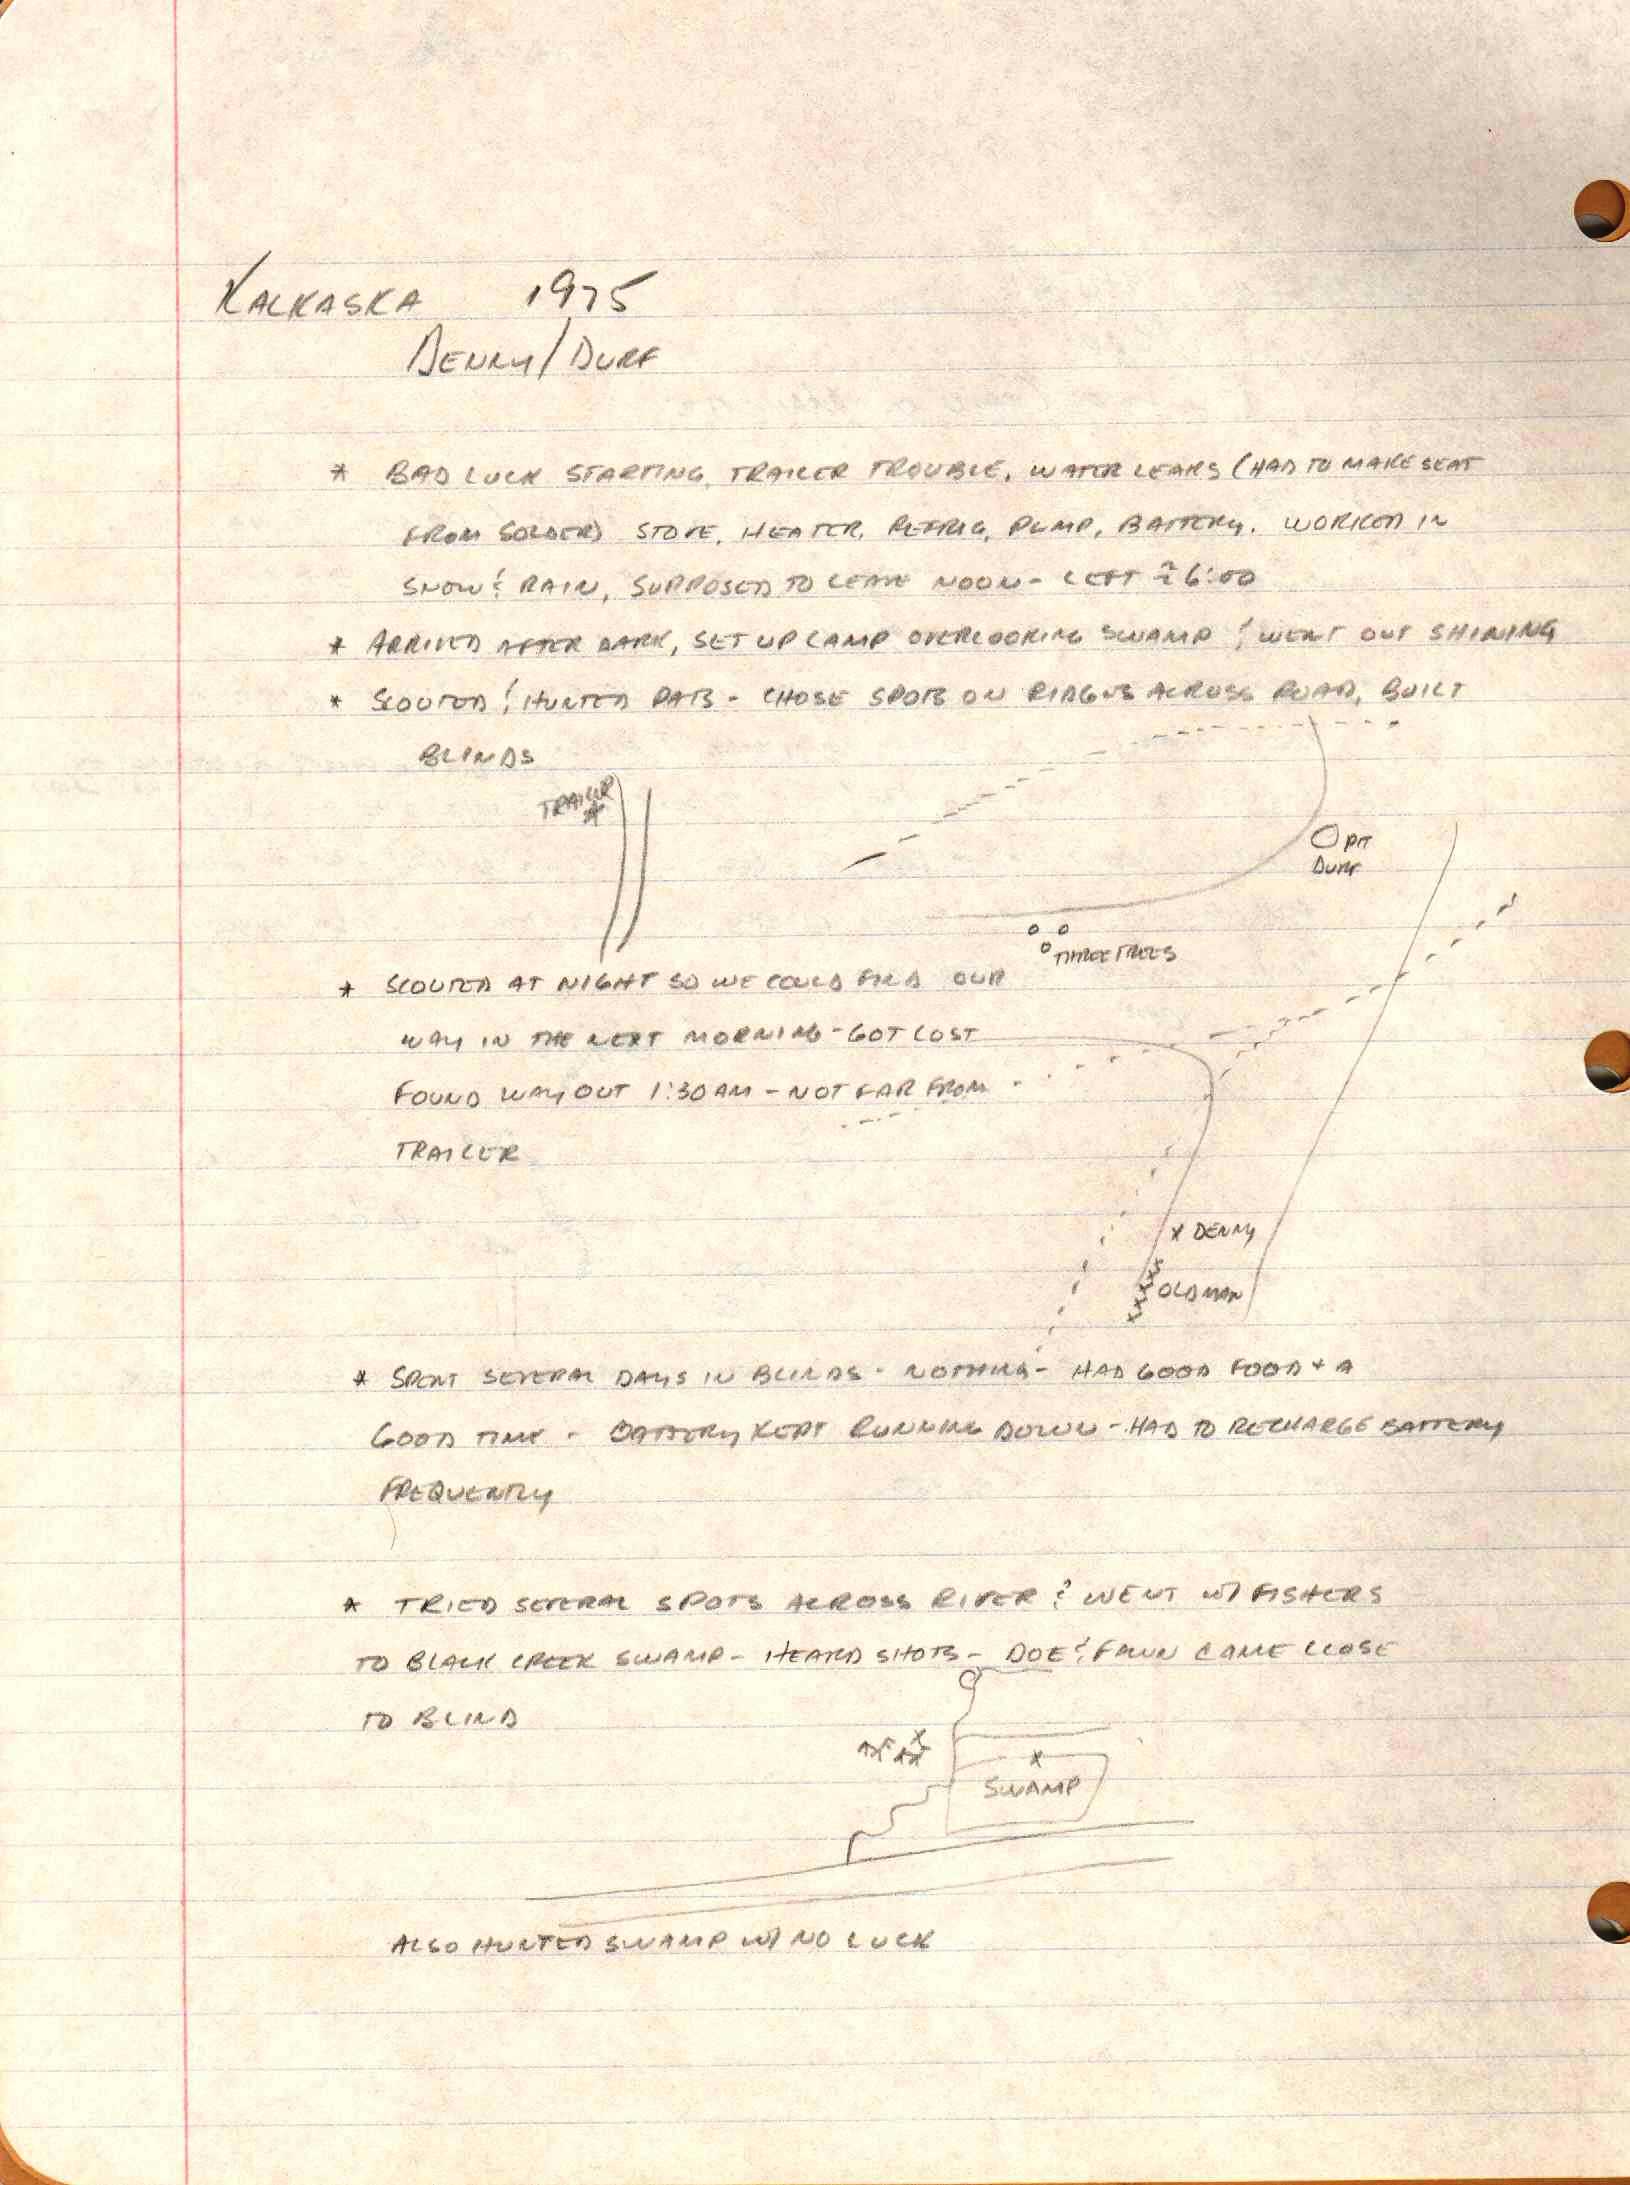 KALKASKA 1975
DENNY/DURF
* BAD LUCK STARTING, TRAILER TROUBLE, WATER LEAKS (HAD TO MAKE SEAT
FROM SOLDER) STOVE, HEATER, REFRIG, PUMP, BATTERY. WORKED IN
SNOW & RAIN, SUPPOSED TO LEAVE NOON - LEFT ≈ 6:00
* ARRIVED AFTER DARK, SET UP CAMP OVERLOOKING SWAMP & WENT OUT SHINING
* SCOUTED & HUNTED PATS - CHOSE SPOTS ON RIDGES ACROSS ROAD, BUILT
BLINDS
TRAILER
PIT
DURF
THREE TREES
* SCOUTED AT NIGHT SO WE COULD FIND OUR
WAY IN THE NEXT MORNING - GOT LOST
FOUND WAY OUT 1:30 AM - NOT FAR FROM
TRAILER
X DENNY
OLD MAN
* SPENT SEVERAL DAYS IN BLINDS - NOTHING - HAD GOOD FOOD + A
GOOD TIME - BATTERY KEPT RUNNING DOWN - HAD TO RECHARGE BATTERY
FREQUENTLY
* TRIED SEVERAL SPOTS ACROSS RIVER & WENT W/ FISHERS
TO BLACK CREEK SWAMP - HEARD SHOTS - DOE & FAWN CAME CLOSE
TO BLIND
X
X
SWAMP
ALSO HUNTED SWAMP W/ NO LUCK